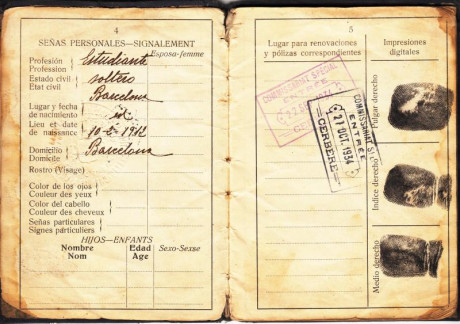 4
SEÑAS PERSONALES—SIGNALEMENT
Esposo-femme
Profesión
Profession
Estudiante
Estado civil
Etat civil
soltero
Barcelona
Lugar y fecha
de nacimiento
id
Lieu et date
de naissance
10-5-1912
Domicilio
Domicile
Barcelona
Rostro (Visage)
Color de los ojos
Couleur des yeux
Color del cabello
Couleur des cheveux
Señas particulares
Signes particuliers
HIJOS—ENFANTS
Nombre
Nom
Edad
Age
Sexo-Sexse
5
Lugar para renovaciones
y pólizas correspondientes
Impresiones
digitales
COMMISSARIAT SPECIAL
ENTRÉE
COMMISSARIAT
ENTRÉE
21 OCT. 1934
CERBÈRE
Pulgar derecho
Indice derecho
Medio derecho